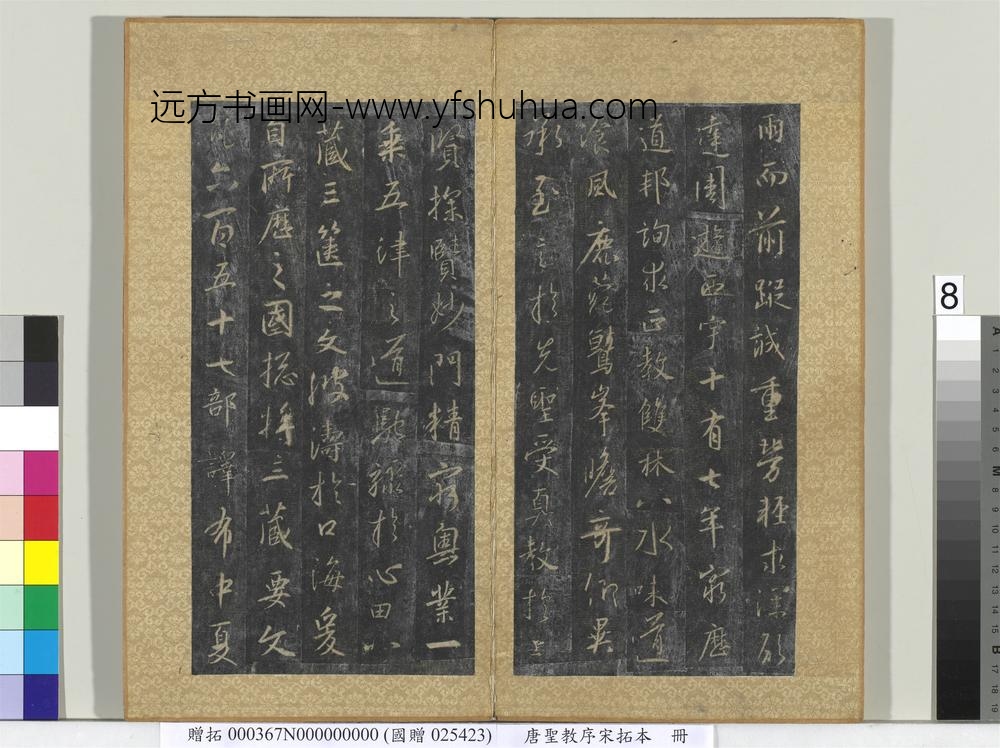 远方书画网-www.yfshuhua.com
雨而前蹤誠重勞輕求深願
達周遊西宇十有七年窮歷
道邦詢求正教雙林八水味道
飡風鹿菀鷲峯瞻奇仰異
承至言於先聖受真教於上
賢探賾妙門精窮奧業一
乘五律之道馳驟於心田八
藏三篋之文波濤於口海爰
自所歷之國揔將三藏要文
凡六百五十七部譯布中夏
8
贈拓 000367N000000000 (國贈 025423) 唐聖教序宋拓本 冊
A 1 2 3 4 5 6 M 8 9 10 11 12 13 14 15 B 17 18 19